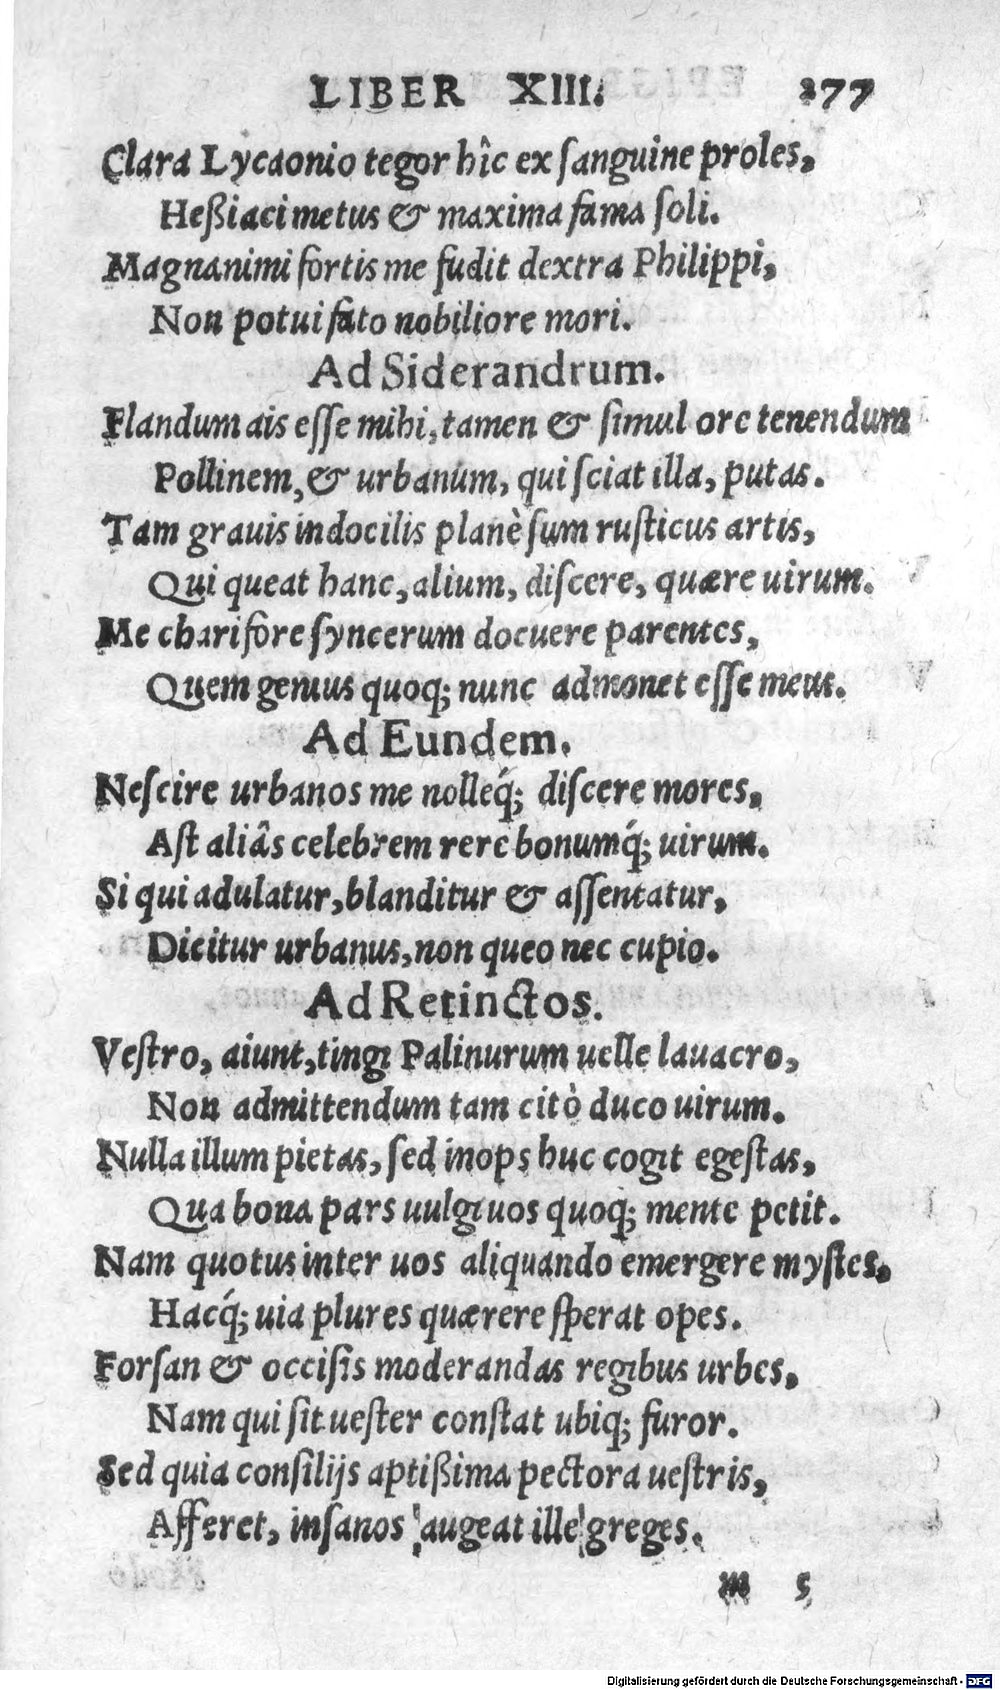 LIBER XIII. 277
Clara Lycaonio tegor hîc ex ſanguine proles,
Heßiaci metus & maxima fama ſoli.
Magnanimi fortis me fudit dextra Philippi,
Non potui fato nobiliore mori.
Ad Siderandrum.
Flandum ais eſſe mihi, tamen & ſimul ore tenendum
Pollinem, & urbanum, qui ſciat illa, putas.
Tam grauis indocilis planè ſum ruſticus artis,
Qui queat hanc, alium, diſcere, quære uirum.
Me chari fore ſyncerum docuere parentes,
Quem genius quoq; nunc admonet eſſe meus.
Ad Eundem.
Neſcire urbanos me nolleq́; diſcere mores,
Aſt aliâs celebrem rere bonumq́; uirum.
Si qui adulatur, blanditur & aſſentatur,
Dicitur urbanus, non queo nec cupio.
Ad Retinctos.
Veſtro, aiunt, tingi Palinurum uelle lauacro,
Non admittendum tam citò duco uirum.
Nulla illum pietas, ſed inops huc cogit egeſtas,
Qua bona pars uulgi uos quoq; mente petit.
Nam quotus inter uos aliquando emergere myſtes,
Hacq́; uia plures quærere ſperat opes.
Forſan & occiſis moderandas regibus urbes,
Nam qui ſit ueſter conſtat ubiq; furor.
Sed quia conſilijs aptißima pectora ueſtris,
Afferet, inſanos augeat ille greges.
m 5
Digitalisierung gefördert durch die Deutsche Forschungsgemeinschaft - DFG